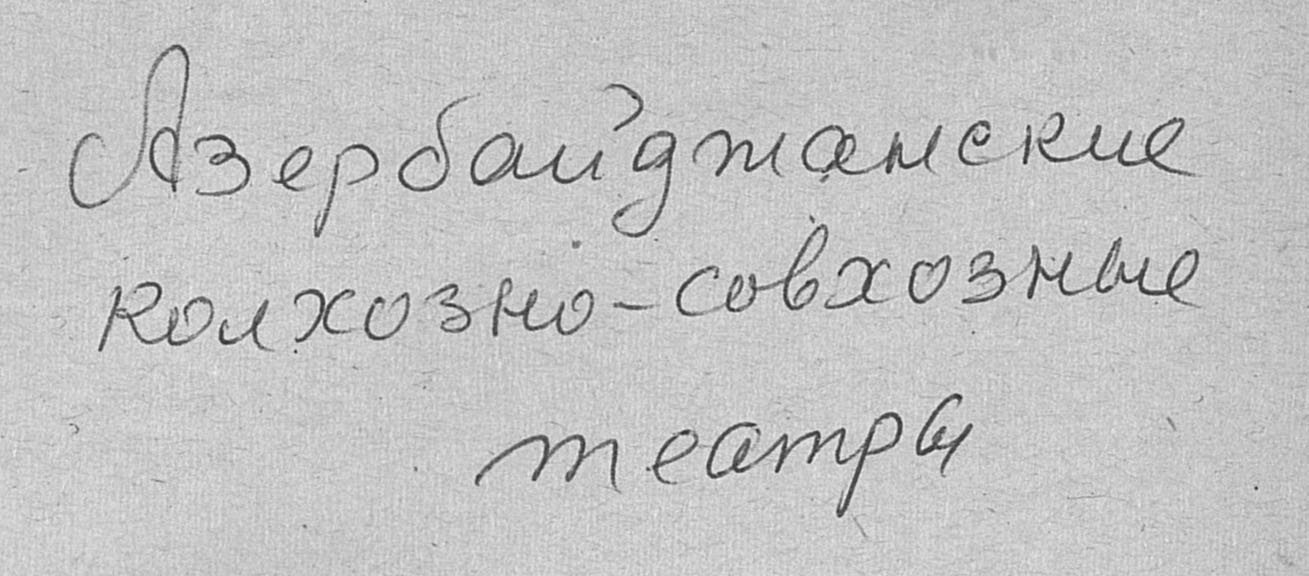 Азербайджанские
колхозно-совхозные
театры